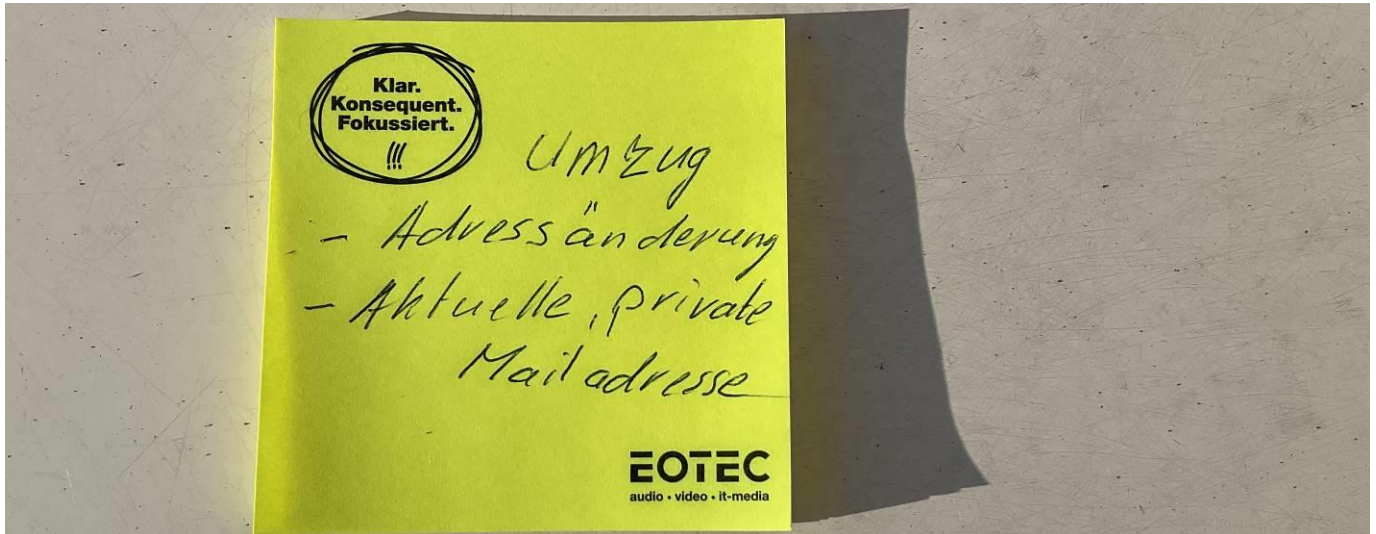 Klar.
Konsequent.
Fokussiert.
!!!
Umzug
- Adressänderung
- Aktuelle, private
Mailadresse
EOTEC
audio • video • it-media